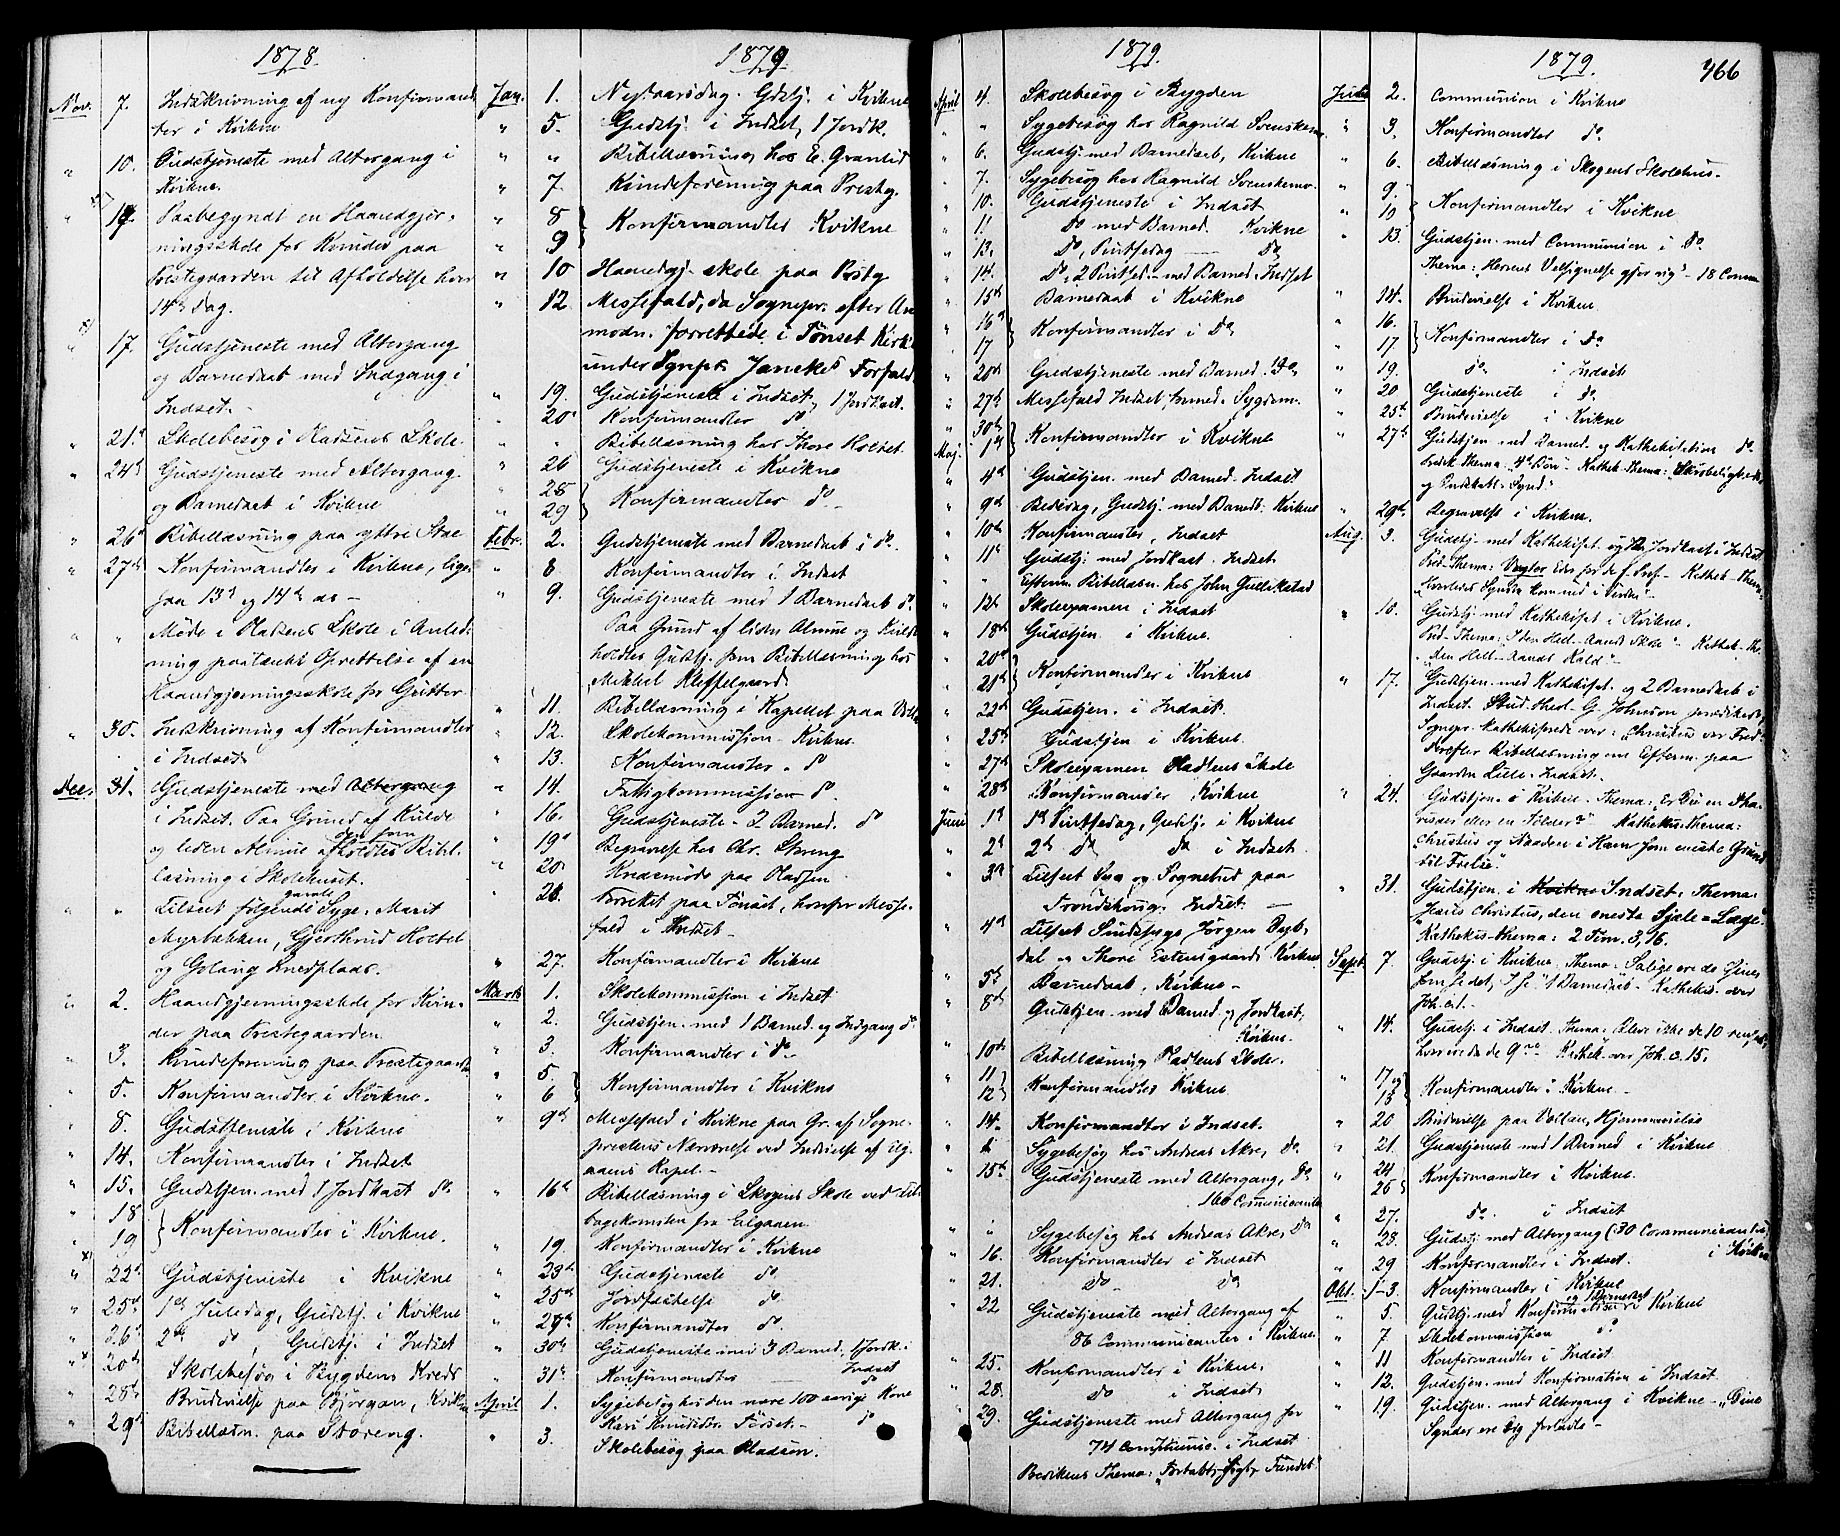 1878.
Nov. 7. Indskrivning af ny Konfirmand-
ter i Kvikne
" 10. Gudstjeneste med Altergang i
Kvikne.
" 14. Paabegyndt en Haandgjer-
ningsskole for Kvinder paa
Prestegaarden til Afholdelse hver
14de Dag.
" 17. Gudstjeneste med Altergang
og Barnedaab med Indgang i
Indset.
" 21. Skolebesøg i Pladsens Skole
" 24de Gudstjeneste med Altergang
og Barnedaab i Kvikne
" 26 Bibellæsning paa yttre Stae
" 27de Konfirmandter i Kvikne, lige-
saa 13de og 14de ds -
" " Møde i Pladsens Skole i Anled-
ning paatænkt Oprettelse af en
Haandgjerningsskole for Gutter.
" 30. Indskrivning af Konfirmandter
i Indset
Dec. 1. Gudstjeneste med Altergang
i Indset. Paa Grund af Kulde
og liden Almue afholdtes den som Bibel-
læsning i Skolehuset.
" " Tilseet følgende gamle Syge: Marit
Myrbækken, Gjertrud Holtet
og Golaug Snedplads.
" 2. Haandgjerningsskole for Kvin-
der paa Prestegaarden.
" 3. Kvindeforening paa Prestegaarden
" 5. Konfirmandter i Kvikne.
" 8. Gudstjeneste i Kvikne
" 14. Konfirmandter i Indset
" 15. Gudstjen. med 1 Jordkast do.
" 18
19 } Konfirmandter i Kvikne.
" 22de Gudstjeneste i Kvikne
" 25de 1ste Juledag, Gudstj. i Kvikne
" 26de 2den do, Gudstj. i Indset
" 20de Skolebesøg i Bygdens Kreds
" 28de Brudevielse paa Bjørgan, Kvikne
" 29de Bibellæsn. paa Storeng.
1879.
Jan. 1. Nytaarsdag. Gdstj. i Kvikne
" 5. Gudstj. i Indset, 1 Jordk.
" " Bibellæsning hos E. Granlid
" 7. Kvindeforening paa Prestg.
" 8
" 9 } Konfirmandter Kvikne
" 10 Haandgj. skole paa Prstg
" 12. Messefald, da Sogneper. efter An-
modn. forrettede i Tønset Kirke
under Sgnepr. Janckes Forfald.
" 19. Gudstjeneste i Indset, 1 Jordkast.
" 20. Konfirmandter do.
" " Bibellæsning hos Thore Holtet
" 26 Gudstjeneste i Kvikne
" 28
29 } Konfirmandter do.
Febr. 2. Gudstjeneste med Barnedaab i do.
" 8. Konfirmandter i Indset
" 9. Gudstjeneste med 1 Barnedaab do.
Paa Grund af liden Almue og Kulde
holdtes Gudstj. som Bibellæsning hos
Mikkel Kleffelgaard.
" 11. Bibellæsning i Kapellet paa
" 12. Skolekommission - Kvikne.
" 13. Konfirmandter - do
" 14. Fattigkommission do.
" 16. Gudstjeneste - 2 Barned. do
" 19. Begravelse hos Chr. Streng
" 20. Kredsmøde paa Pladsen
" 2. Forrettet paa Tønset, hvorfor Messe-
fald i Indset.
" 27. Konfirmandter i Kvikne
Marts 1. Skolekommission i Indset
" 2. Gudstjen. med 1 Barned. og Indgang do
" 3. Konfirmandter i do.
" 5
6 } Konfirmandter i Kvikne
" 9de Messefald i Kvikne paa Gr. af Sogne-
prestens Nærværelse ved Indvielse af Elg-
aaens Kapel. -
" 16de Bibellæsning i Skogens Skole ved Til-
bagekomsten fra Elgaaen.
" 19. Konfirmandter i Kvikne
" 23de Gudstjeneste do.
" 25de Jordfæstelse do.
" 27de Konfirmandter do.
" 30de Gudstjeneste med 3 Barned. 1 Jordk. i
Indset
" 31te Konfirmandter do
April 1. Sygebesøg hos den nære 100 aarige Kone
Kari Knudsdtr. Tørset. - do
" 3. Skolebesøg paa Pladsen.
1879.
April 4. Skolebesøg i Bygden
" " Sygebesøg hos Ragnild Svenskemo
" 6. Gudstj. med Barnedaab, Kvikne
" 7. Sygebesøg hos Ragnild Svenskemo.
" 10. Gudstjeneste i Indset
" 11. do med Barned. Kvikne
" 13. do, Paaskedag do
" 14. do, 2 - med Barned. Indset
" 15de Barnedaab i Kvikne
" 16de
" 17 } Konfirmandter i do
" 20de Gudstjeneste med Barned. do
" 27de Messefald Indset, formed. Sygdom.
" 30te
Maj. 1ste } Konfirmandter i Kvikne
" 4de Gudstjen. med Barned. Indset
" 9de Bededag, Gudstj. med Barned: Kvikne
" 10de Konfirmanter, Indset
" 11te Gudstj. med Jordkast. Indset.
" " Efterm. Bibellæsn. hos John Gullikstad
" 12te Skoleexamen i Indset
" 18de Gudstjen. i Kvikne.
" 20de
" 21de } Konfirmandter i Kvikne
" 22de Gudstjen. i Indset.
" 25de Gudstjen i Kvikne.
" 27de Skoleexamen Pladsens Skole
" 28de Konfirmander Kvikne
Juni 1ste 1ste Pintsedag, Gudstj. i Kvikne
" 2de 2de do do i Indset.
" 3de Tilseet Syg og Sognebud paa
Trøndshoug, Indset. -
" 4de Tilseet Sindssyge Jørgen Dyb-
dal og Thore Estensgaard, Kvikne
" 5te Barnedaab, Kvikne -
" 8de Gudstjen. med Barned. og Jordkast,
Kvikne.
" 10de Bibellæsning Pladsens Skole.
" 11
12 } Konfirmandter Kvikne
" 14. Konfirmandter i Indset.
" " Sygebesøg hos Andreas Akre, do.
" 15de Gudstjeneste med Altergang, do
160 Communicanter
" " Sygebesøg hos Andreas Akre, do
" 16. Konfirmandter i Indset
" 21. do do
" 22 Gudstjeneste med Altergang af
86 Communicanter i Kvikne.
" 25. Konfirmandter i Kvikne,
" 28. do i Indset
" 29. Gudstjeneste med Altergang for
74 Communic. i Indset
Prædikens Thema: "Fortabt - Søgt - Fundet."
1879. 466
2. Communion i Kvikne
" 3. Konfirmandter do.
" 6. Bibellæsning i Skogens Skolehus.
" 9.
" 10 } Konfirmandter i Kvikne
" 13. Gudstjen. med Communion i do.
Thema: "Herrens Velsignelse gjør rig" - 18 Comm
" 14. Brudevielse i Kvikne
" 16.
" 17 } Konfirmandter i do
" 19. do i Indset
" 20 Gudstjeneste i do
" 25de Brudevielse i Kvikne
" 27de Gudstjen. med Barned. og Kathekisation do
og Endskabt. Synd."
" 29de Begravelse i Kvikne.
Aug. 3. Gudstj. med Kathekisat. og Jordkast i Indset
Præd-Thema: Vogter Eder for de f. Prof. - Kathek-Thema
"Hvorledes Synden kom ind i Verden" -
" 10. Gudstj. med Kathekisat i Kvikne.
Præd-Thema: "I den Hell-Aands Skole" - Kathek-Th.
"Den Hell-Aands Kald" -
" 17. Gudstjen. med Kathekisat. og 2 Barnedaab i
Indset. Stud. theol. G. Johnson prædikede,
Sognepr. kathekiserede over: "Christus vor Fred"
Derefter Bibellæsning om Efterm. paa
Gaarden Lille-Indset.
" 24. Gudstjen. i Kvikne. Thema: Er Du en Pha-
risæer eller en Tolder? Kathekis-Thema:
"Christus og Naaden i Ham som eneste Grund
til Frelse."
" 31. Gudstjen. i Kvikne Indset. Thema:
"Jesus Christus, den eneste Sjæle-Læge."
Kathekis-thema: 2 Tim. 3,16.
Sept. 7. Gudstj. i Kvikne. Thema: Salige ere de Øine,
som se det, I se." 1 Barnedaab - Kathekis. over
Joh. c. 1. -
" 14. Gudstj. i Indset. Thema: Bleve ikke de 10 rensede,
hvor ere da de 9" Kathek. over Joh. c. 15.
" 17 og
18 } Konfirmandter i Kvikne. -
" 20 Brudevielse paa Vollan, Hjemmevielse
" 21. Gudstjeneste med 1 Barned i Kvikne
" 24
25 } Konfirmandter i Kvikne.
" 27. do. i Indset
" 28. Gudstj. med Altergang (30 Communicanter)
i Kvikne
" 29 Konfirmandter i Indset.
Okt. 1-3. Konfirmandter i Kvikne
" 5. Gudstj. med Konfirmation og 1 Barnedaab i Kvikne
" 7 Skolekommission do.
" 11 Konfirmandter i Indset
" 12. Gudstjen. med Konfirmation i Indset
" 19 Gudstjen. med Altergang i Kvikne - "Dine
Synder ere Dig forladte" -